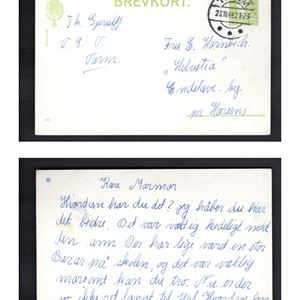 BREVKORT.
Th. Gjeulff
V. S. T.
Tarm.
Fru E. Hornbech.
"Helvetia"
Endelave. by
pr Horsens
Kære Mormor
Hvordan har du det? jeg håber du har
det bedre. Det var vældig kedeligt med
din arm. Der har lige været en stor
Bazar på skolen, og det var vældig
morsomt kan du tro. Nu er der
jo ikke ret langt til Jul.